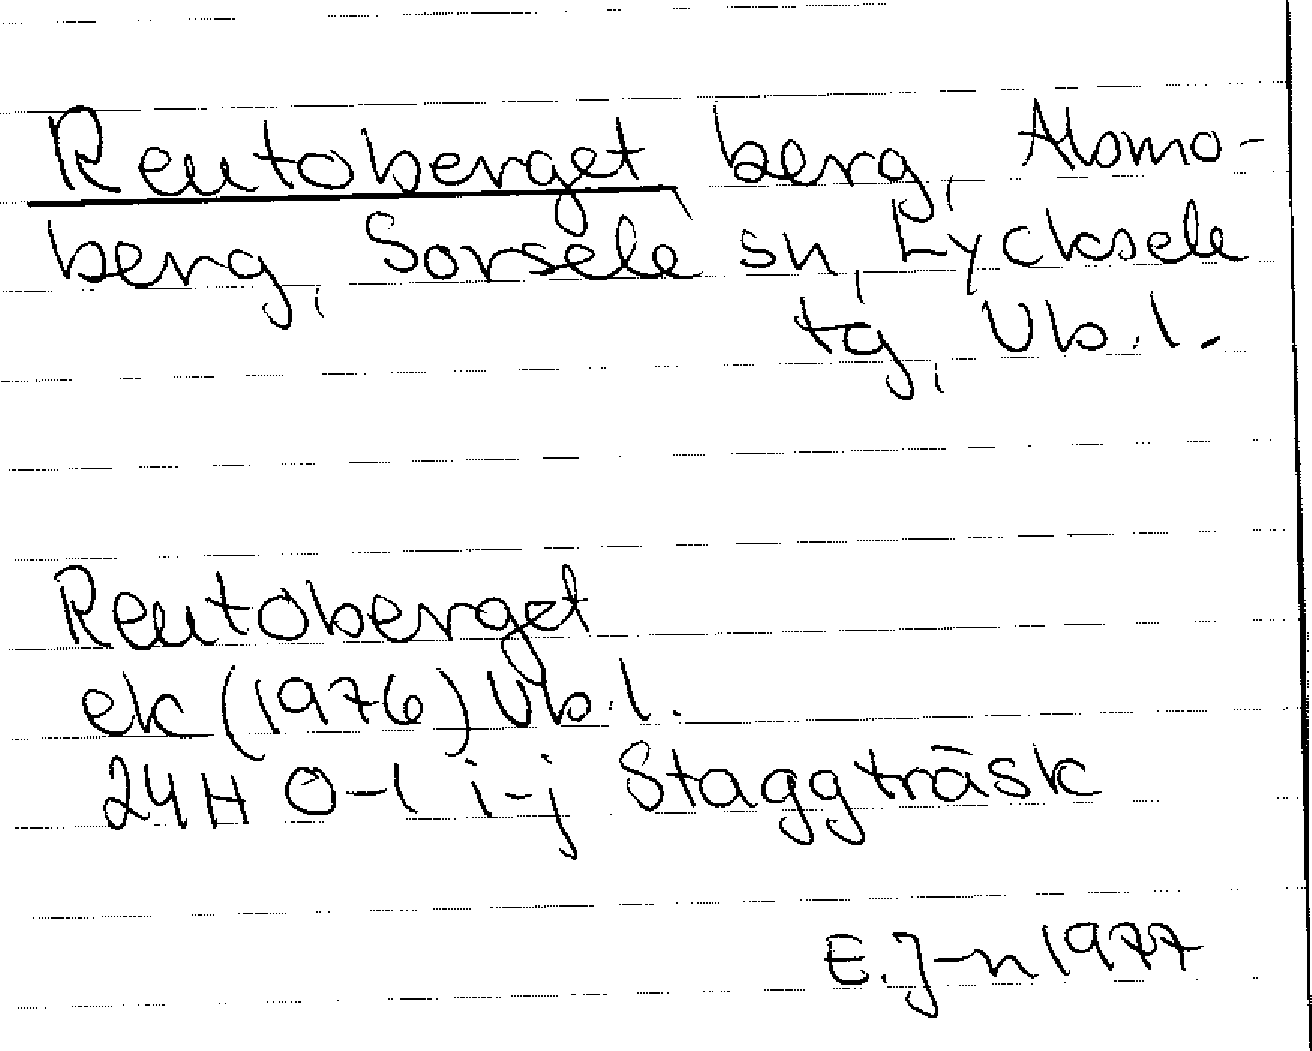 Reutoberget berg, Alsmo-
berg, Sorsele sn, Lycksele
tg, Vb.l.
Reutoberget
ek (1976) Vb.l.
24H 0-1 i-j Staggträsk
E.J-n 1977